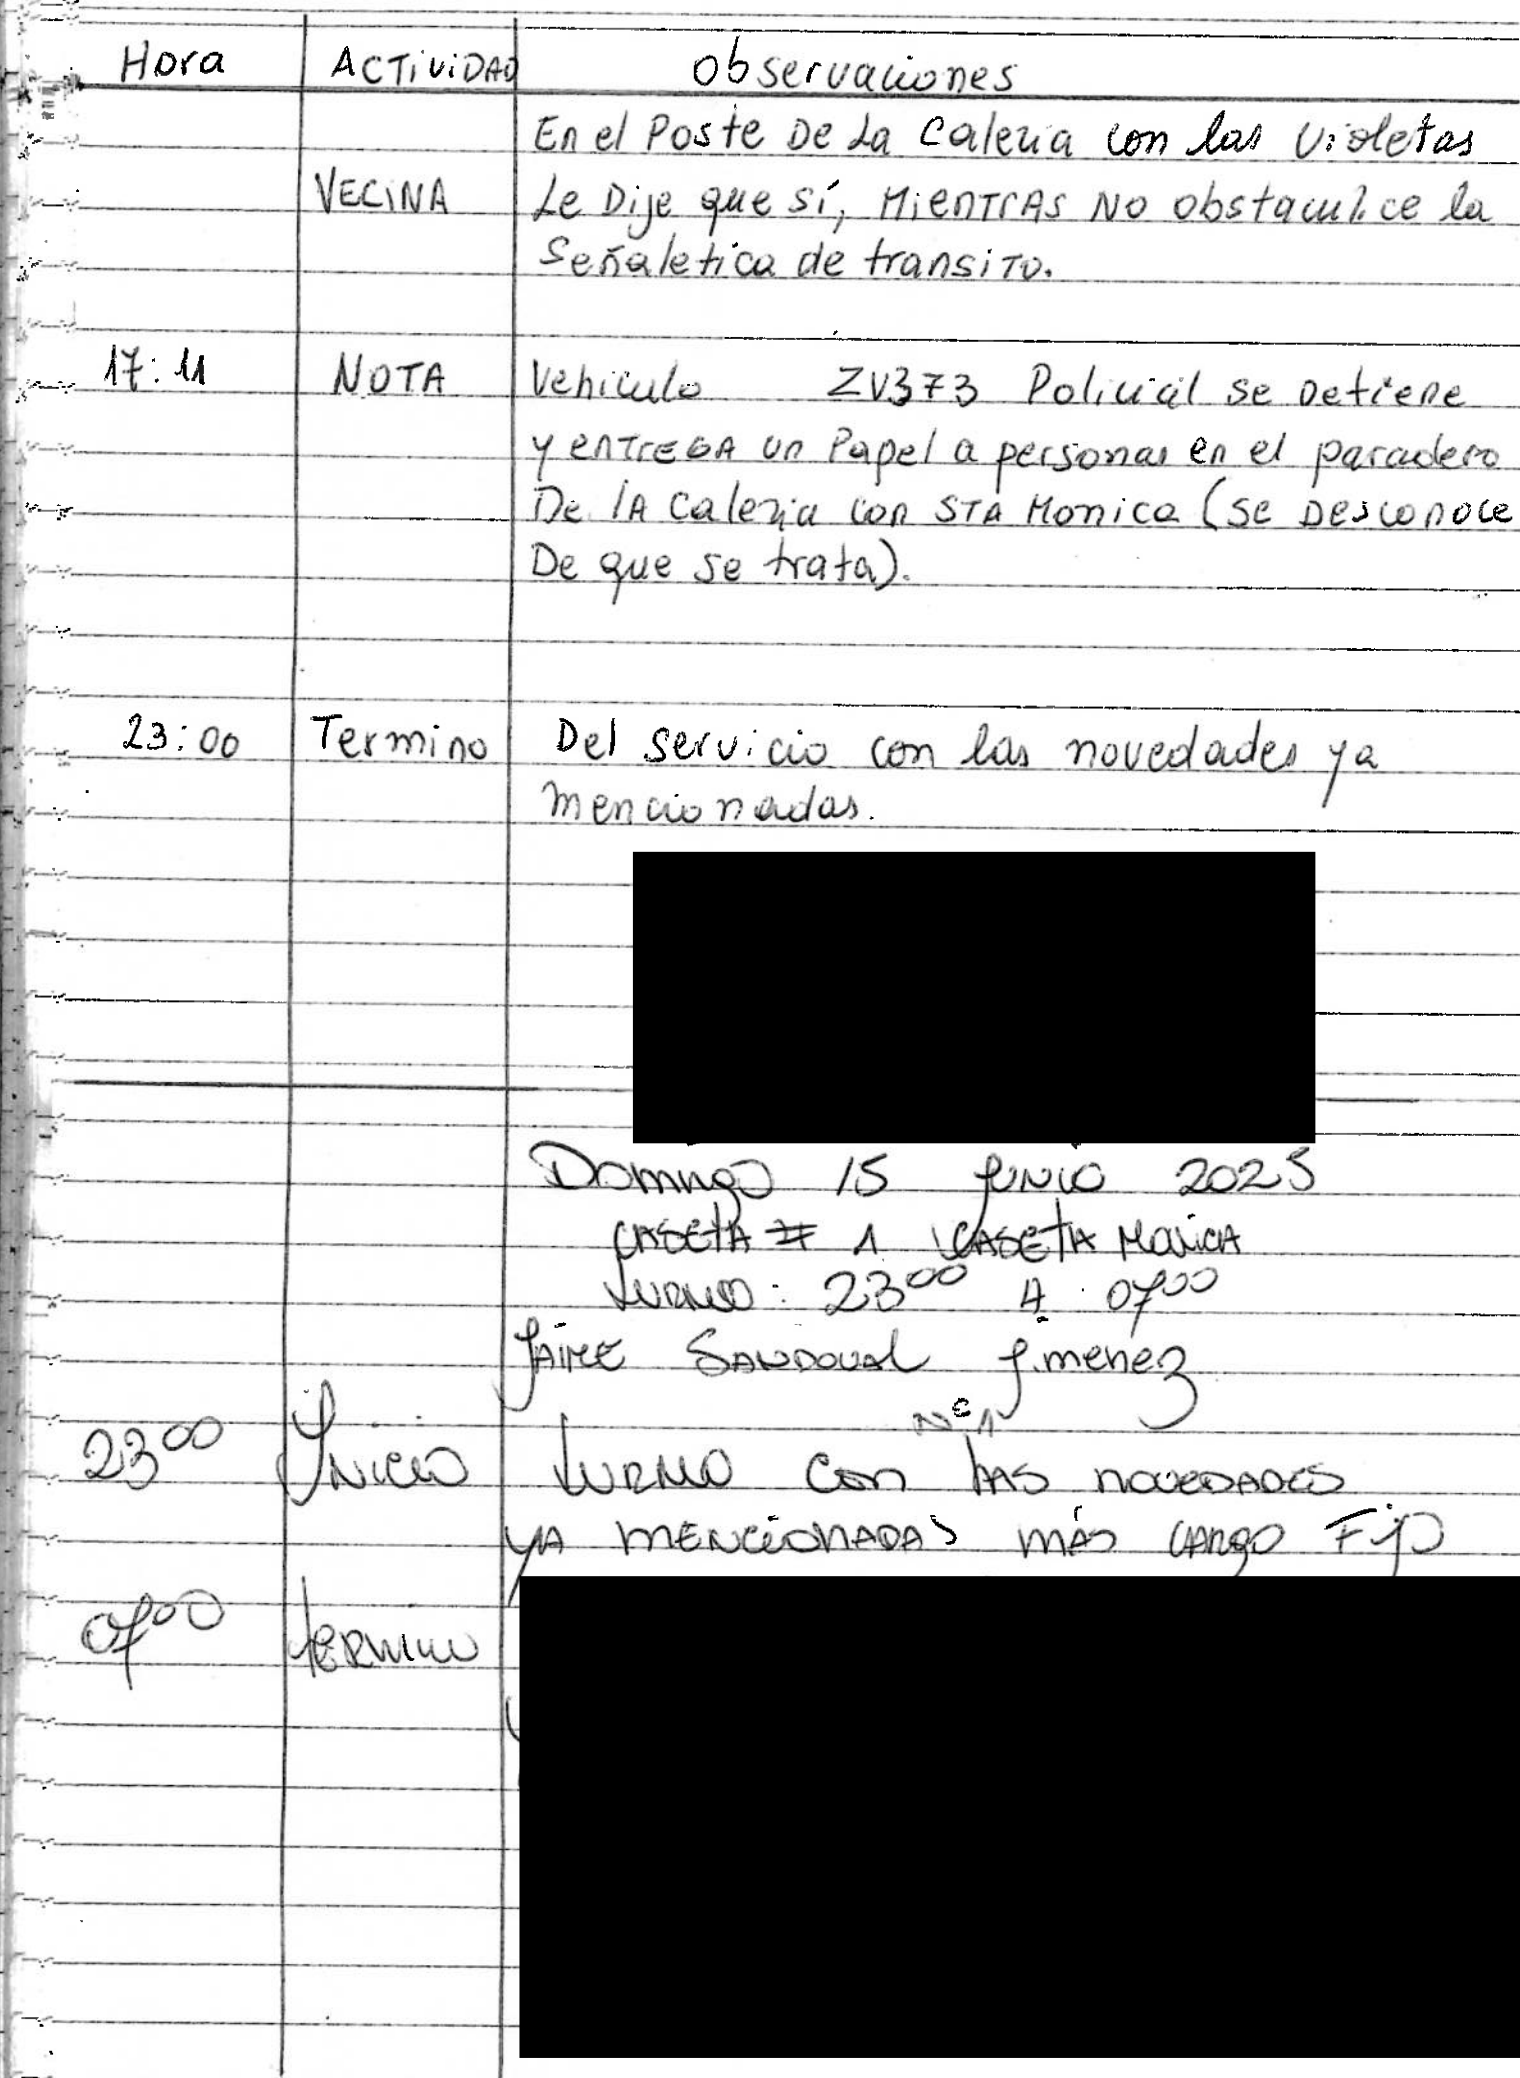 Hora ACTIVIDAD Observaciones
En el Poste De La Calezia con las Violetas
VECINA Le Dije que sí, MIENTRAS NO obstaculice la
Señaletica de transito.
17:11 NOTA Vehiculo ZV373 Policial se Detiene
y ENTREGA un Papel a personas en el paradero
De lA Calezia con STA Monica (se Desconoce
De que se trata).
23:00 Termino Del servicio con las novedades ya
mencionadas.
Domingo 15 JUNIO 2025
CASETA # 1 CASETA MONICA
TURNO: 23⁰⁰ A 07⁰⁰
JAIME SANDOVAL Jimenez
Nº1
23⁰⁰ INICIO TURNO Con LAS NOVEDADES
YA MENCIONADAS MÁS CARGO FIJO
07⁰⁰ TERMINO